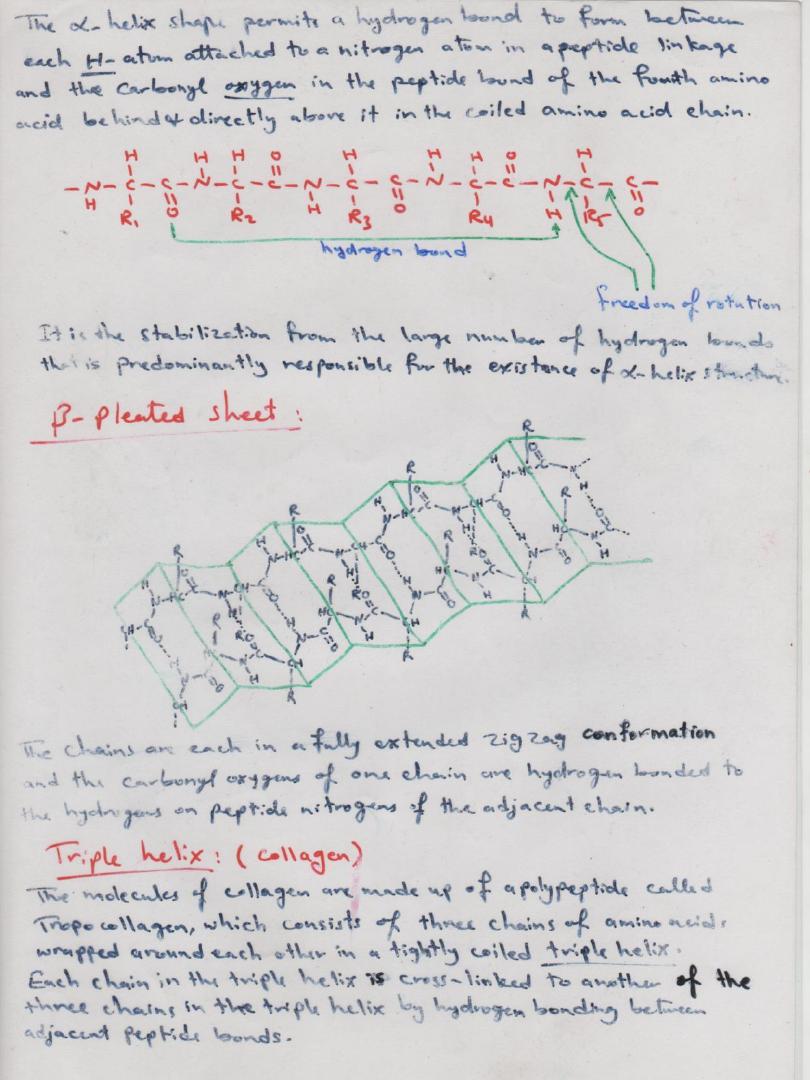 The α-helix shape permits a hydrogen bond to form between
each H-atom attached to a nitrogen atom in a peptide linkage
and the carbonyl oxygen in the peptide bond of the fourth amino
acid behind & directly above it in the coiled amino acid chain.
H H H O H H H O H
-N-C-C-N-C-C-N-C-C-N-C-C-N-C-C-
H R1 O R2 H R3 O R4 H R5 O
hydrogen bond
freedom of rotation
It is the stabilization from the large number of hydrogen bonds
that is predominantly responsible for the existance of α-helix structure.
β-pleated sheet:
The chains are each in a fully extended zigzag conformation
and the carbonyl oxygens of one chain are hydrogen bonded to
the hydrogens on peptide nitrogens of the adjacent chain.
Triple helix: (collagen)
The molecules of collagen are made up of a polypeptide called
Tropocollagen, which consists of three chains of amino acids
wrapped around each other in a tightly coiled triple helix.
Each chain in the triple helix is cross-linked to another of the
three chains in the triple helix by hydrogen bonding between
adjacent peptide bonds.